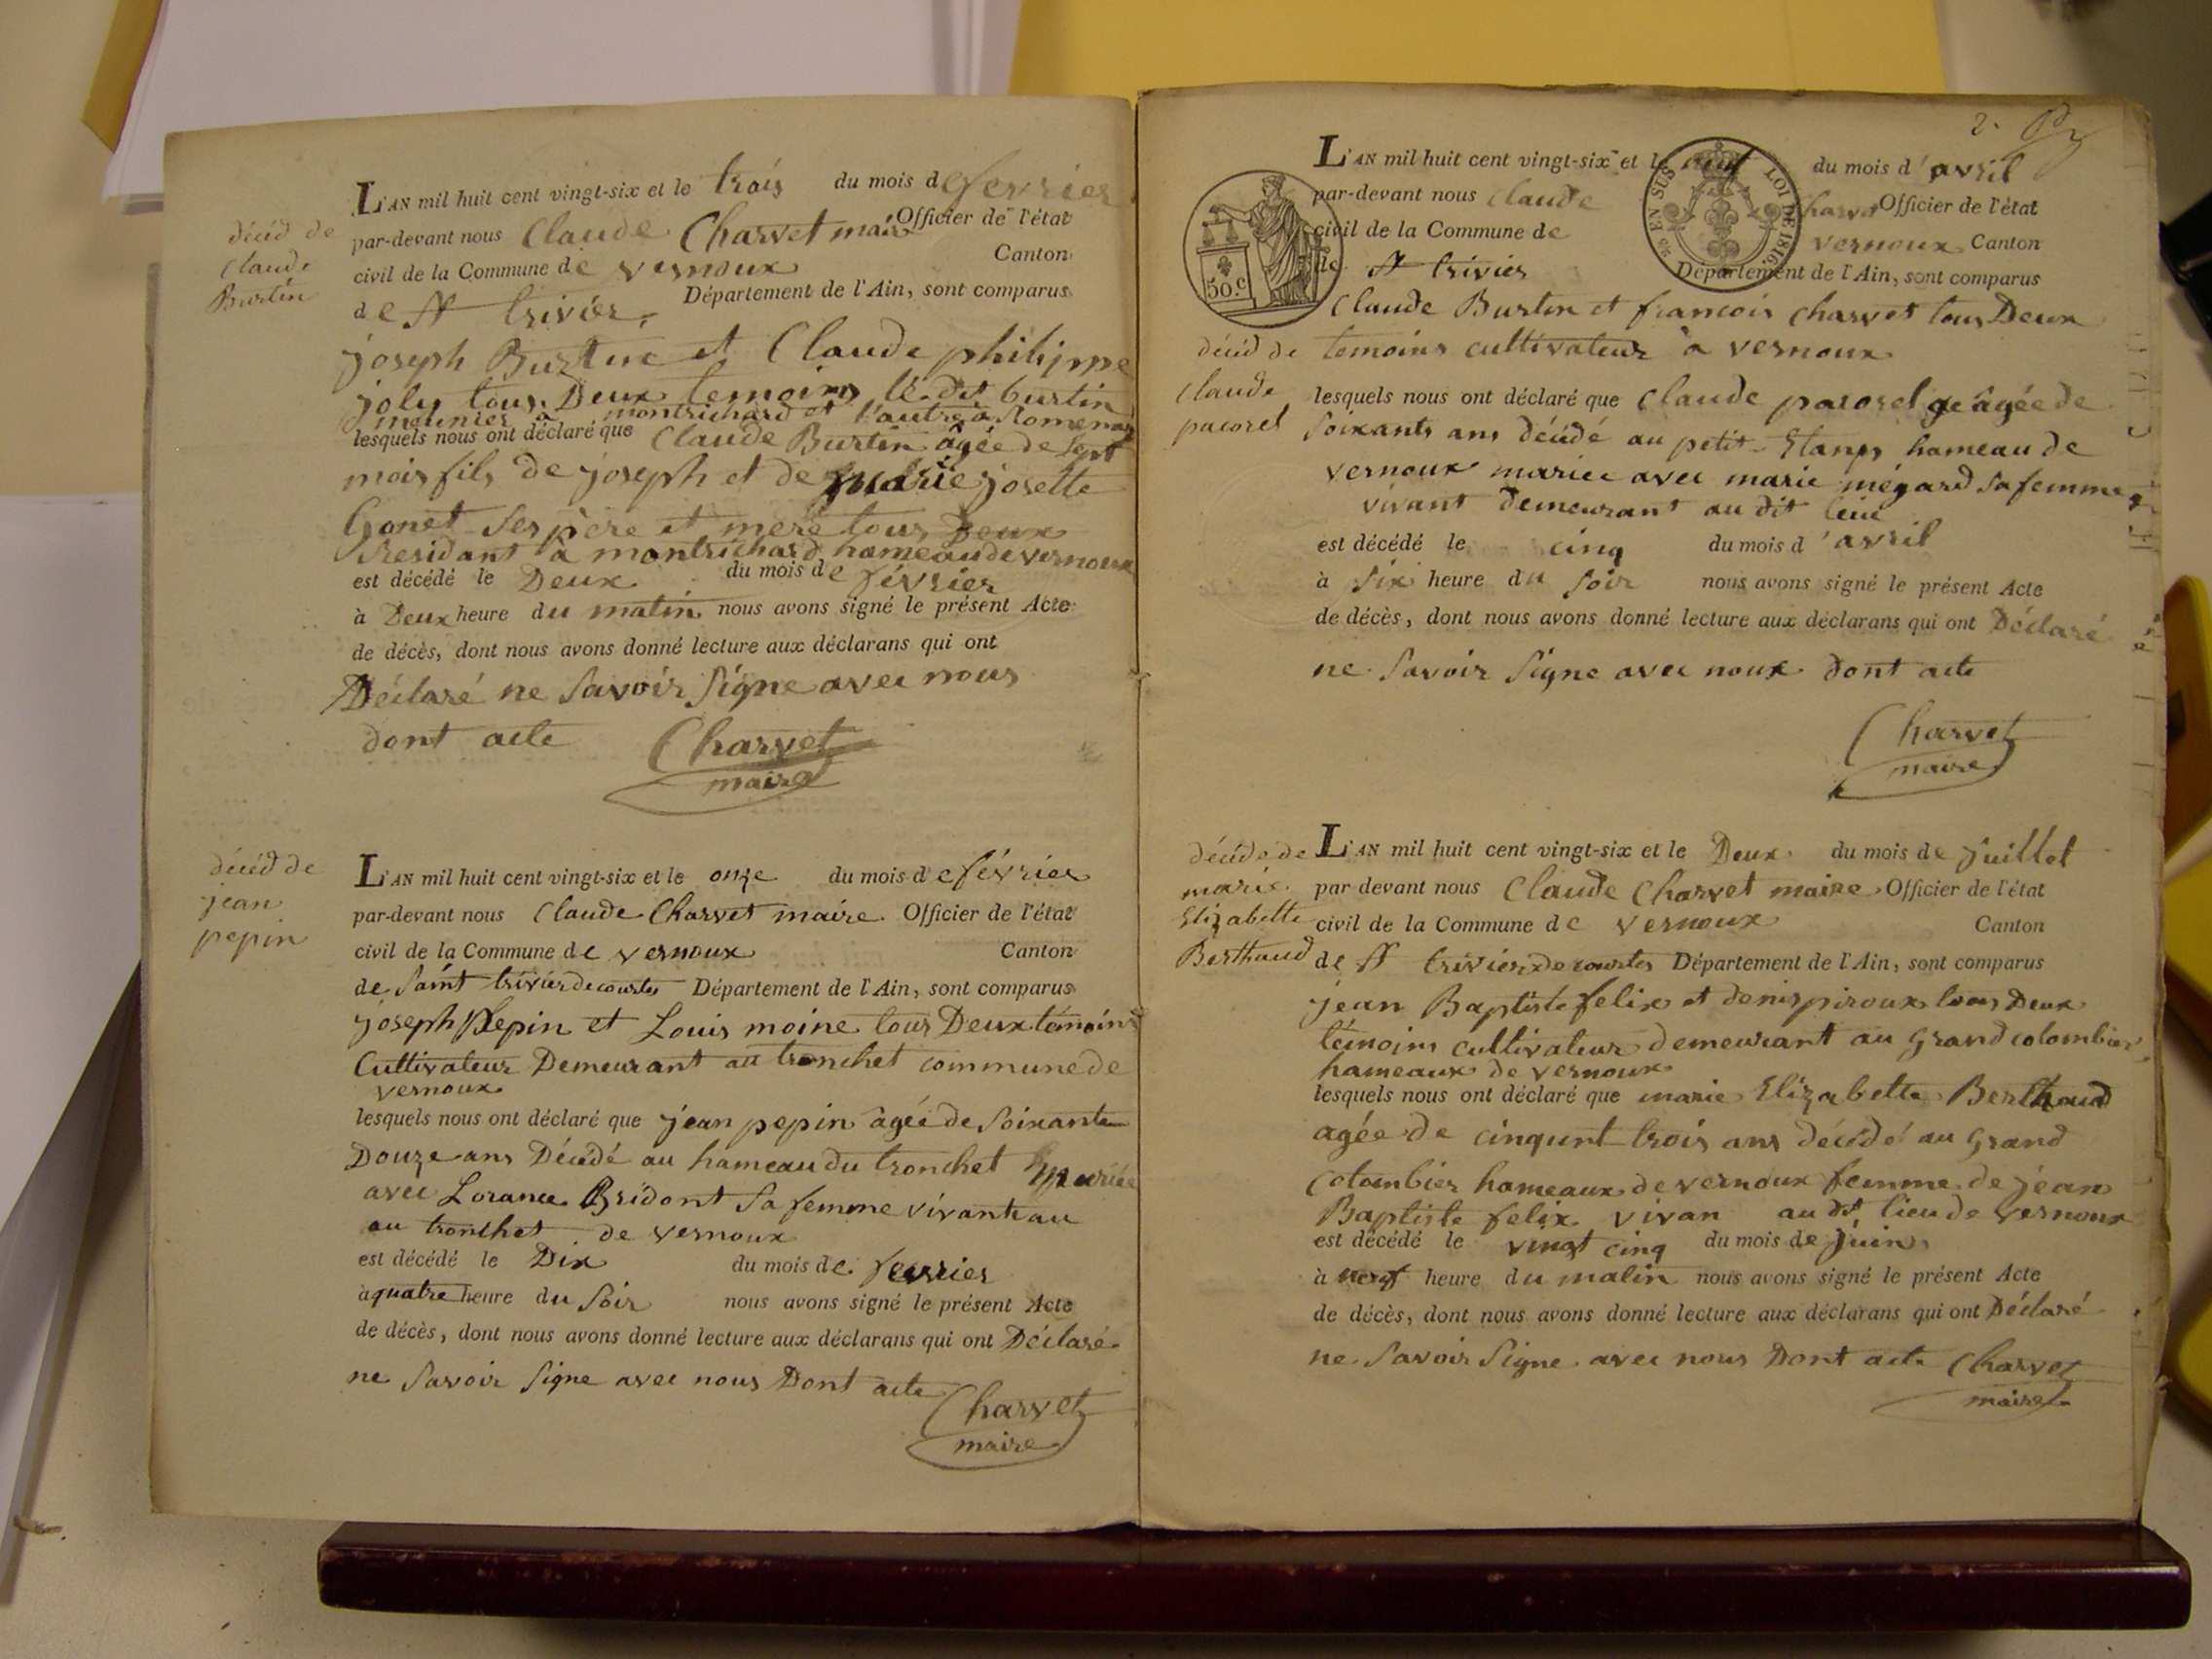 L'AN mil huit cent vingt-six et le trois du mois de fevrier
par-devant nous Claude Charvet maire Officier de l'état
civil de la Commune de vernoux Canton
de st trivier Département de l'Ain, sont comparus
décéd de
Claude
Burtin
joseph Burtin et Claude philippe
joly tous Deux temoins le dit burtin
meunier a montrichard et l'autre a Romenay
lesquels nous ont déclaré que Claude Burtin âgée de sept
mois fils de joseph et de marie josette
Gonet ses père et mere tous Deux
residant à montrichard hameau de vernoux
est décédé le Deux du mois de février
à Deux heure du matin nous avons signé le présent Acte
de décès, dont nous avons donné lecture aux déclarans qui ont
Déclaré ne savoir signe avec nous
dont acte Charvet
maire
décéd de
jean
pepin
L'AN mil huit cent vingt-six et le onze du mois de février
par-devant nous Claude Charvet maire Officier de l'état
civil de la Commune de vernoux Canton
de saint trivier de courtes Département de l'Ain, sont comparus
joseph Pepin et Louis moine tous Deux témoins
Cultivateur Demeurant au tronchet commune de
vernoux
lesquels nous ont déclaré que jean pepin agée de soixante
Douze ans Décédé au hameau du tronchet mariée
avec Lorance Bridont sa femme vivante au
au tronchet de vernoux
est décédé le Dix du mois de fevrier
à quatre heure du soir nous avons signé le présent Acte
de décès, dont nous avons donné lecture aux déclarans qui ont Déclaré
ne savoir signe avec nous Dont acte
Charvet
maire
2.
L'AN mil huit cent vingt-six et le du mois d'avril
par-devant nous Claude Charvet Officier de l'état
civil de la Commune de vernoux Canton
de st trivier Département de l'Ain, sont comparus
EN SUS LOI DE 1816
50.c
Claude Burtin et francois charvet tous Deux
temoins cultivateur à vernoux
décéd de
claude
pacoret
lesquels nous ont déclaré que Claude pacoret agée de
soixante ans décédé au petit Etang hameau de
vernoux mariee avec marie mégard sa femme
vivant demeurant au dit lieu
est décédé le cinq du mois d'avril
à six heure du soir nous avons signé le présent Acte
de décès, dont nous avons donné lecture aux déclarans qui ont Déclaré
ne savoir signe avec noux dont acte
Charvet
maire
décéde de
marie
Elizabette
Berthaud
L'AN mil huit cent vingt-six et le Deux du mois de juillet
par devant nous Claude Charvet maire Officier de l'état
civil de la Commune de vernoux Canton
de st trivier de courtes Département de l'Ain, sont comparus
jean Baptiste felix et denis piroux tous Deux
témoins cultivateur demeurant au grand colombier
hameaux de vernoux
lesquels nous ont déclaré que marie Elizabette Berthaud
agée de cinqunt trois ans décédé au grand
colombier hameaux de vernoux femme de jean
Baptiste felix vivan au dt lieu de vernoux
est décédé le vingt cinq du mois de juin
à neuf heure du matin nous avons signé le présent Acte
de décès, dont nous avons donné lecture aux déclarans qui ont Déclaré
ne savoir signe avec nous Dont acte Charvet
maire